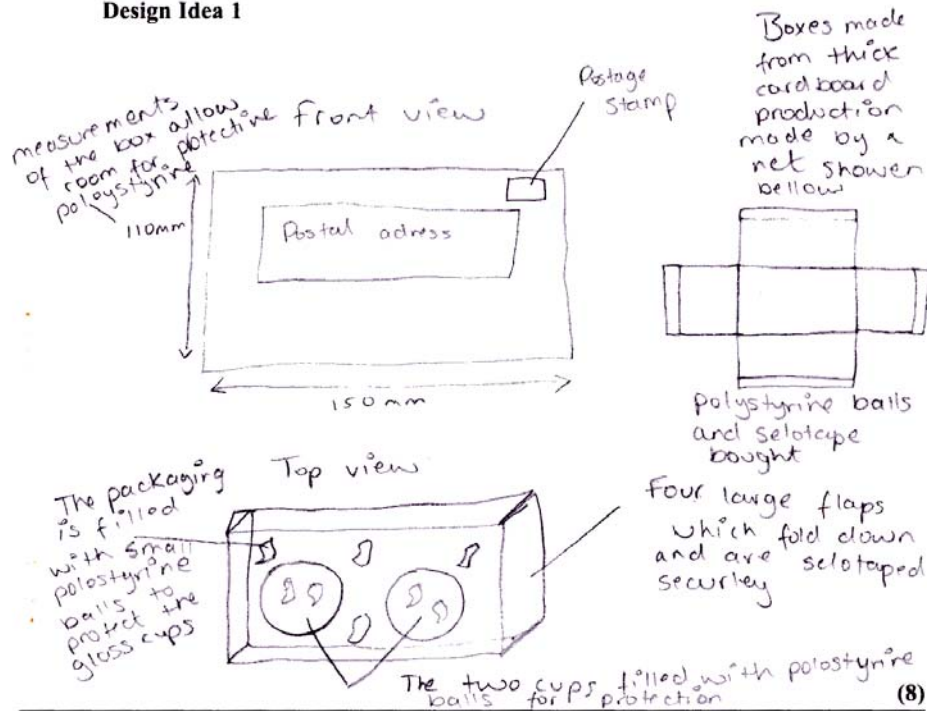 Design Idea 1
measurements
of the box allow
room for protective
poloystyrine
front view
Postage
Stamp
Boxes made
from thick
cardboard
production
made by a
net shower
bellow
110mm
Postal adress
150mm
polystyrine balls
and selotape
bought
The packaging
is filled
with small
polostyrine
balls to
protect the
glass cups
Top view
Four large flaps
which fold down
and are selotaped
securley
The two cups filled with polostyrine
balls for protection
(8)